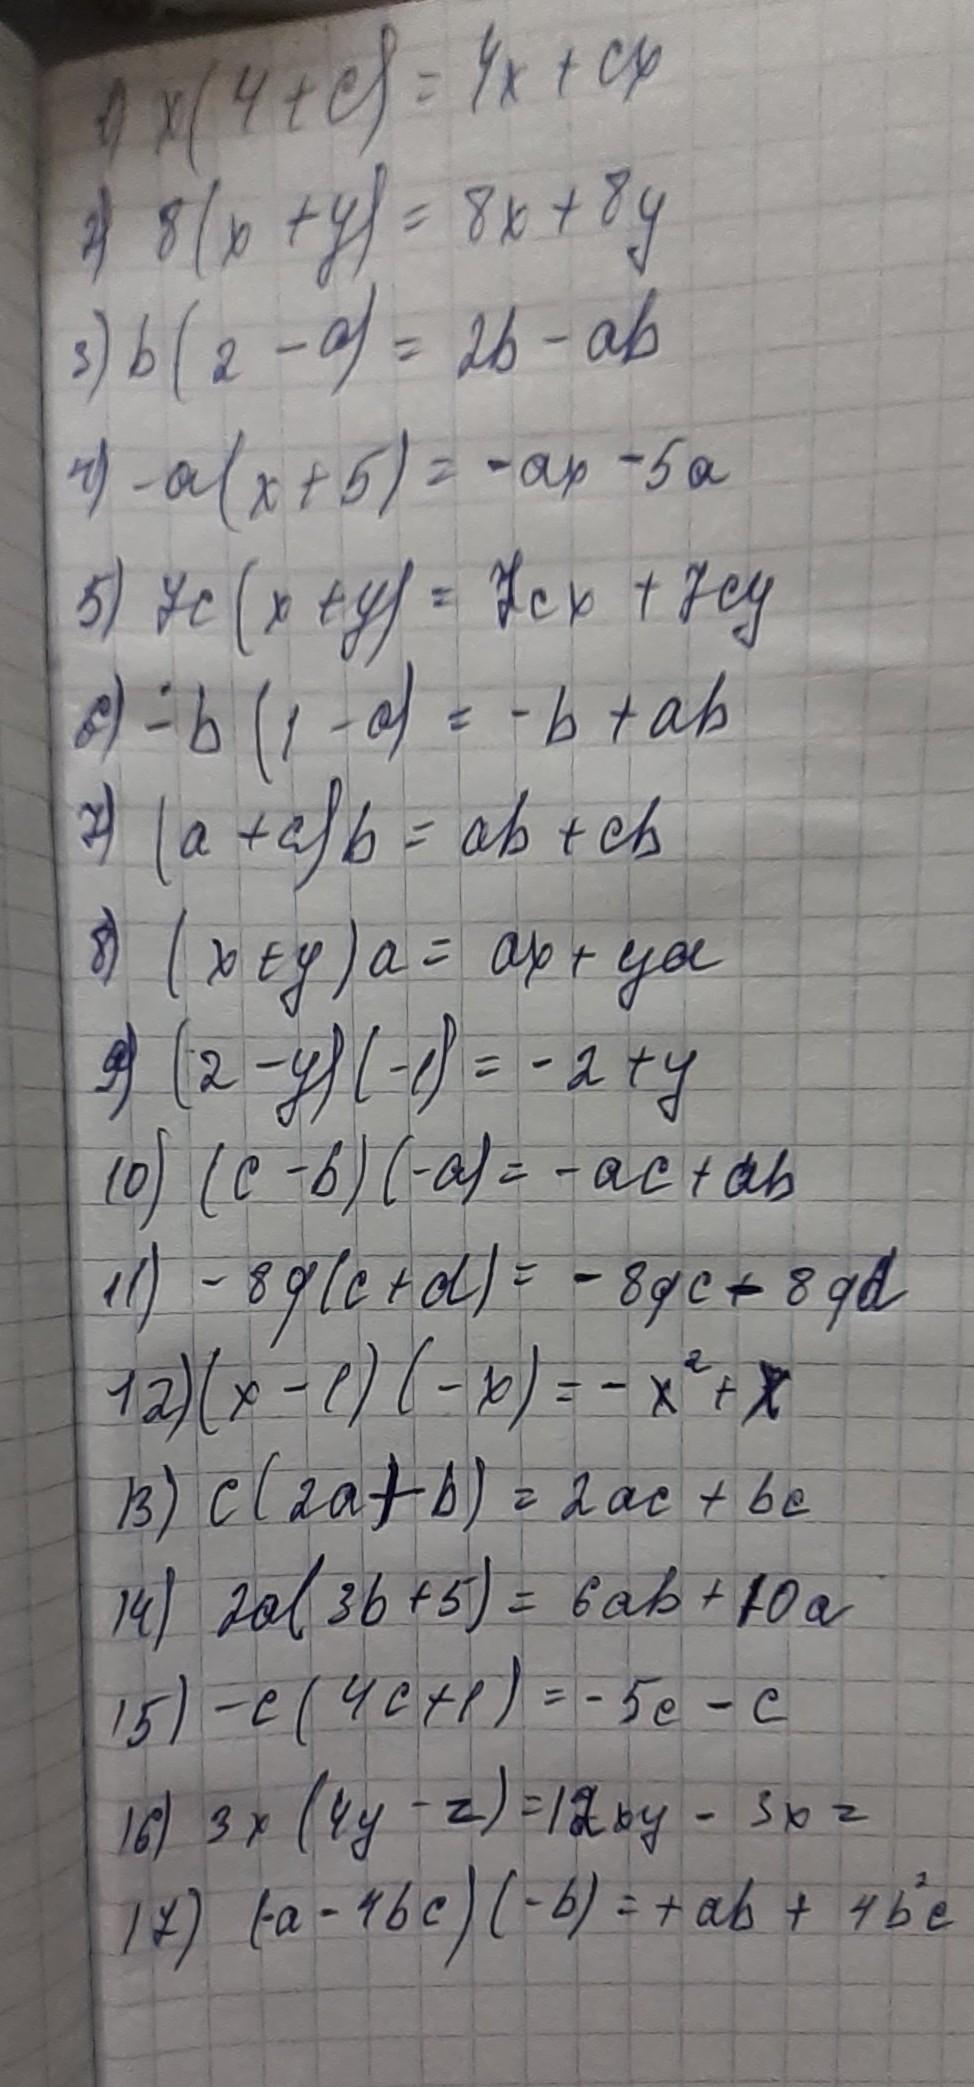 1) x(4+c) = 4x + cx
2) 8(x+y) = 8x + 8y
3) b(2-a) = 2b - ab
4) -a(x+5) = -ax -5a
5) 7c(x+y) = 7cx + 7cy
6) -b(1-a) = -b + ab
7) (a+c)b = ab + cb
8) (x+y)a = ax + ya
9) (2-y)(-1) = -2 + y
10) (c-b)(-a) = -ac + ab
11) -8q(c+d) = -8qc - 8qd
12) (x-1)(-x) = -x² + x
13) c(2a+b) = 2ac + bc
14) 2a(3b+5) = 6ab + 10a
15) -c(4c+1) = -5c - c
16) 3x(4y-z) = 12xy - 3xz
17) (-a-4bc)(-b) = +ab + 4b²c